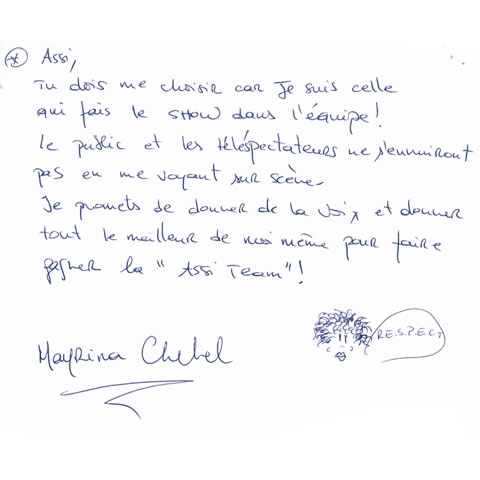 * Assi,
Tu dois me choisir car Je suis celle
qui fais le show dans l'équipe!
Le public et les téléspectateurs ne s'ennuiront
pas en me voyant sur scène.
Je promets de donner de la voix et donner
tout le meilleur de moi même pour faire
gagner la "Assi Team"!
R.E.S.P.E.C.T
Mayrina Chebel